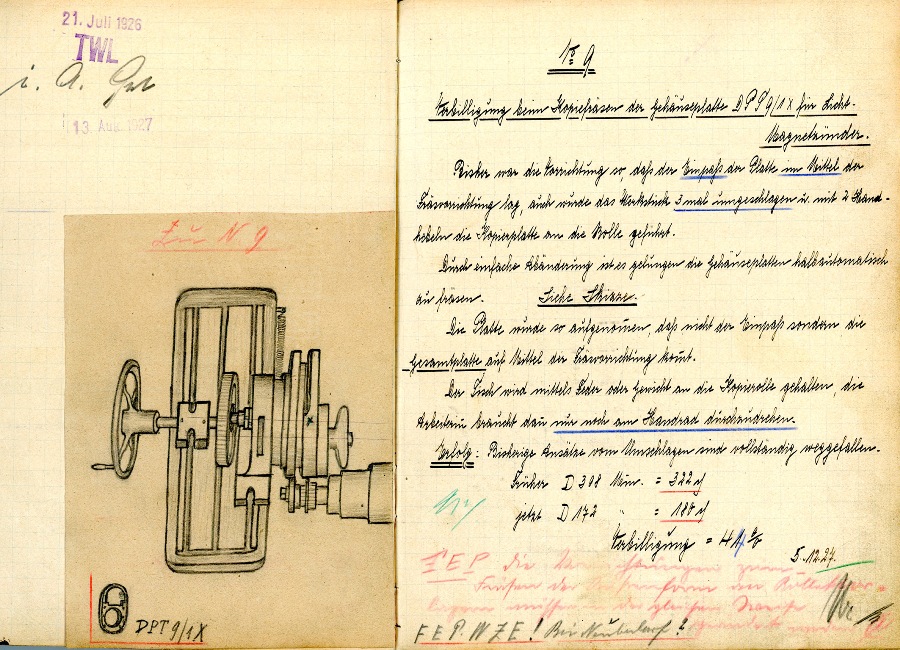 21. Juli 1926
TWL
i. A.
13. Aug. 1927
Zu N 9
DPT 9/1X
No 9
Verbilligung beim Kopierfräsen der Gehäuseplatte DPT 9/1X für Licht-
Magnetzünder.
Bisher war die Vorrichtung so, daß der Einpaß der Platte im Mittel der
Fräsvorrichtung lag, auch wurde das Werkstück 3 mal umgeschlagen u. mit 2 Hand-
hebeln die Kopierplatte an die Rolle geführt.
Durch einfache Abänderung ist es gelungen die Gehäuseplatten halbautomatisch
zu fräsen. Siehe Skizze.
Die Platte wurde so aufgenommen, daß nicht der Einpaß sondern die
Gesamtplatte auf Mittel der Fräsvorrichtung kommt.
Der Tisch wird mittels Feder oder Gewicht an die Kopierrolle gehalten, die
Arbeiterin braucht dann nur noch am Handrad durchzudrehen.
Erfolg: Bisherige Ansätze vom Umschlagen sind vollständig weggefallen.
Früher D 308 Min. = 322 ₰
jetzt D 172 " = 180 ₰
Verbilligung = 44 %
5.12.27.
FEP die Vorrichtungen zum
Fräsen der
lagern müssen in der gleichen Weise
geändert werden
FEP. WZE! Bei Neubedarf?